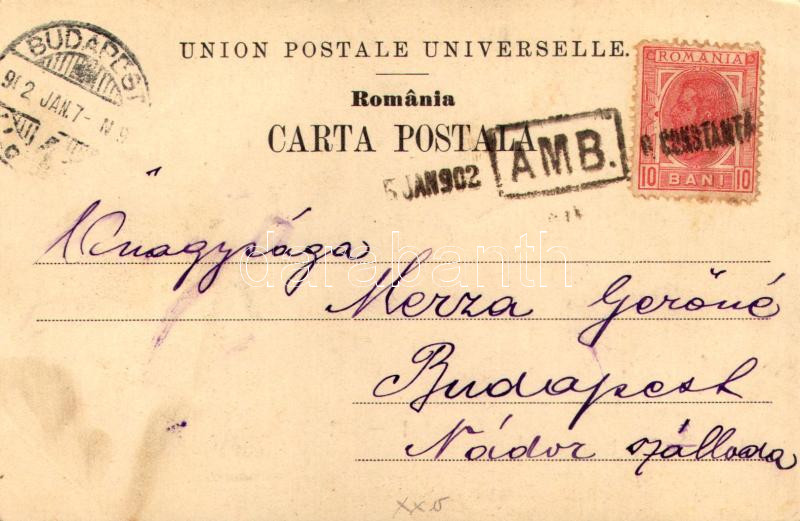 UNION POSTALE UNIVERSELLE.
România
CARTA POSTALA
BUDAPEST
902 JAN. 7
ROMANIA
10 BANI 10
5 JAN 902
AMB.
CONSTANTA
Őnagysága
Merza Gerőné
Budapest
Nádor szálloda
darabanth